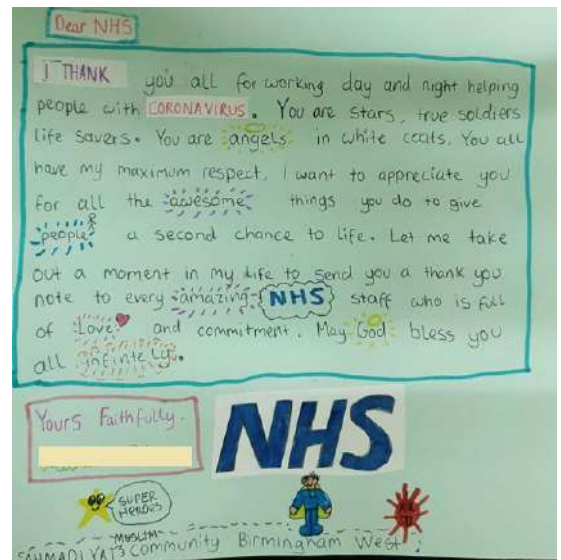 Dear NHS
I THANK you all for working day and night helping
people with CORONAVIRUS. You are stars, true soldiers
life savers. You are angels in white coats. You all
have my maximum respect. I want to appreciate you
for all the awesome things you do to give
people a second chance to life. Let me take
out a moment in my life to send you a thank you
note to every amazing NHS staff who is full
of Love and commitment. May God bless you
all infintely.
Yours Faithfully.
NHS
SUPER
HEROES
MUSLIM
Community Birmingham West